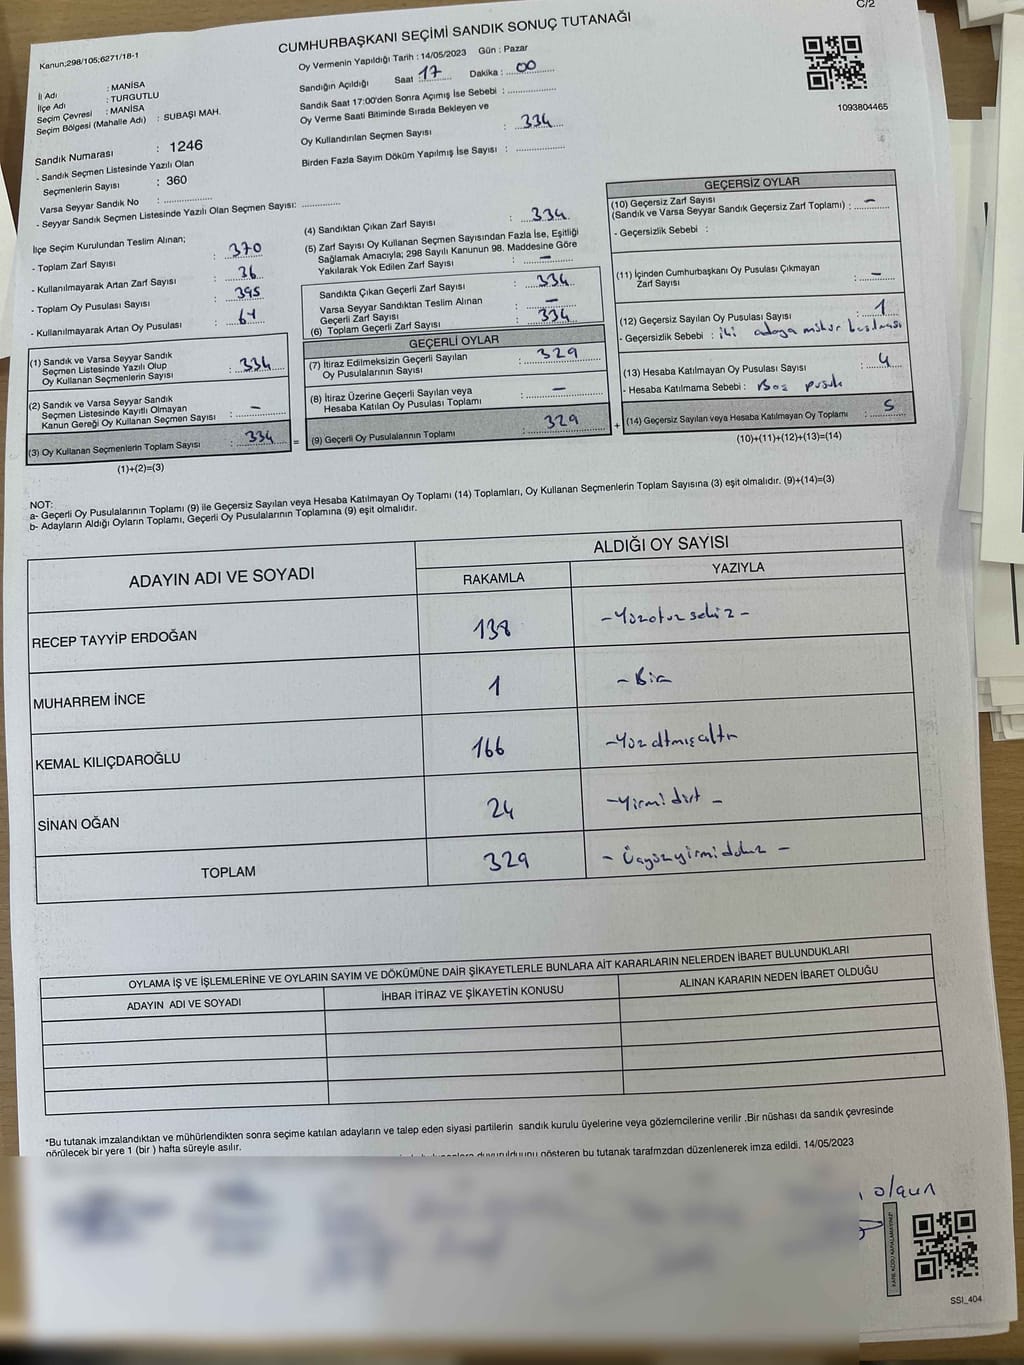 C/2
CUMHURBAŞKANI SEÇİMİ SANDIK SONUÇ TUTANAĞI
Kanun;298/105;6271/18-1
İl Adı : MANİSA
İlçe Adı : TURGUTLU
Seçim Çevresi : MANİSA
Seçim Bölgesi (Mahalle Adı) : SUBAŞI MAH.
Sandık Numarası : 1246
- Sandık Seçmen Listesinde Yazılı Olan
Seçmenlerin Sayısı : 360
Varsa Seyyar Sandık No : ..................
- Seyyar Sandık Seçmen Listesinde Yazılı Olan Seçmen Sayısı: ..............
Oy Vermenin Yapıldığı Tarih : 14/05/2023 Gün : Pazar
Sandığın Açıldığı Saat 17 Dakika : 00
Sandık Saat 17:00'den Sonra Açımış İse Sebebi : ..................
Oy Verme Saati Bitiminde Sırada Bekleyen ve
Oy Kullandırılan Seçmen Sayısı : 334
Birden Fazla Sayım Döküm Yapılmış İse Sayısı : ..................
1093804465
İlçe Seçim Kurulundan Teslim Alınan;
- Toplam Zarf Sayısı : 370
- Kullanılmayarak Artan Zarf Sayısı : 36
- Toplam Oy Pusulası Sayısı : 395
- Kullanılmayarak Artan Oy Pusulası : 61
(1) Sandık ve Varsa Seyyar Sandık
Seçmen Listesinde Yazılı Olup
Oy Kullanan Seçmenlerin Sayısı : 334
(2) Sandık ve Varsa Seyyar Sandık
Seçmen Listesinde Kayıtlı Olmayan
Kanun Gereği Oy Kullanan Seçmen Sayısı : -
(3) Oy Kullanan Seçmenlerin Toplam Sayısı : 334 =
(1)+(2)=(3)
(4) Sandıktan Çıkan Zarf Sayısı : 334
(5) Zarf Sayısı Oy Kullanan Seçmen Sayısından Fazla İse, Eşitliği
Sağlamak Amacıyla; 298 Sayılı Kanunun 98. Maddesine Göre
Yakılarak Yok Edilen Zarf Sayısı : -
Sandıkta Çıkan Geçerli Zarf Sayısı : 334
Varsa Seyyar Sandıktan Teslim Alınan
Geçerli Zarf Sayısı : -
(6) Toplam Geçerli Zarf Sayısı : 334
GEÇERLİ OYLAR
(7) İtiraz Edilmeksizin Geçerli Sayılan
Oy Pusulalarının Sayısı : 329
(8) İtiraz Üzerine Geçerli Sayılan veya
Hesaba Katılan Oy Pusulası Toplamı : -
(9) Geçerli Oy Pusulalarının Toplamı : 329 +
GEÇERSİZ OYLAR
(10) Geçersiz Zarf Sayısı
(Sandık ve Varsa Seyyar Sandık Geçersiz Zarf Toplamı) : -
- Geçersizlik Sebebi :
(11) İçinden Cumhurbaşkanı Oy Pusulası Çıkmayan
Zarf Sayısı : -
(12) Geçersiz Sayılan Oy Pusulası Sayısı : 1
- Geçersizlik Sebebi : iki adaya mühür basılması
(13) Hesaba Katılmayan Oy Pusulası Sayısı : 4
- Hesaba Katılmama Sebebi : Boş pusula
(14) Geçersiz Sayılan veya Hesaba Katılmayan Oy Toplamı : 5
(10)+(11)+(12)+(13)=(14)
NOT:
a- Geçerli Oy Pusulalarının Toplamı (9) ile Geçersiz Sayılan veya Hesaba Katılmayan Oy Toplamı (14) Toplamları, Oy Kullanan Seçmenlerin Toplam Sayısına (3) eşit olmalıdır. (9)+(14)=(3)
b- Adayların Aldığı Oyların Toplamı, Geçerli Oy Pusulalarının Toplamına (9) eşit olmalıdır.
ADAYIN ADI VE SOYADI ALDIĞI OY SAYISI
RAKAMLA YAZIYLA
RECEP TAYYİP ERDOĞAN 138 -Yüzotuzsekiz-
MUHARREM İNCE 1 -Bir
KEMAL KILIÇDAROĞLU 166 -Yüzaltmışaltı
SİNAN OĞAN 24 -Yirmidört-
TOPLAM 329 -Üçyüzyirmidokuz-
OYLAMA İŞ VE İŞLEMLERİNE VE OYLARIN SAYIM VE DÖKÜMÜNE DAİR ŞİKAYETLERLE BUNLARA AİT KARARLARIN NELERDEN İBARET BULUNDUKLARI
ADAYIN ADI VE SOYADI İHBAR İTİRAZ VE ŞİKAYETİN KONUSU ALINAN KARARIN NEDEN İBARET OLDUĞU
*Bu tutanak imzalandıktan ve mühürlendikten sonra seçime katılan adayların ve talep eden siyasi partilerin sandık kurulu üyelerine veya gözlemcilerine verilir .Bir nüshası da sandık çevresinde
görülecek bir yere 1 (bir ) hafta süreyle asılır.
duyurulduğunu gösteren bu tutanak tarafımzdan düzenlenerek imza edildi. 14/05/2023
olgun
KARE KODU KAPALAMAYINIZ!
SSI_404